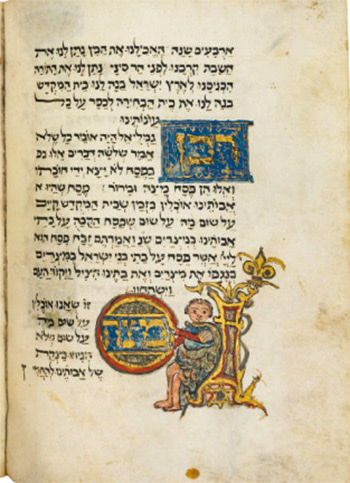 ארבעים שנה האכילנו את המן נתן לנו את
השבת קרבנו לפני הר סיני נתן לנו את התורה
הכניסנו לארץ ישראל בנה לנו בית המקדש
בנה לנו את בית הבחירה לכפר על כל
עונותינו
רבן
גמליאל היה אומר כל שלא
אמר שלשה דברים אלו
בפסח לא יצא ידי חובתו
ואלו הן פסח מצה ומרור פסח שהיו
אבותינו אוכלין בזמן שבית המקדש קיים
על שום מה על שום שפסח הקבה על בתי
אבותינו במצרים שנ ואמרתם זבח פסח הוא
אשר פסח על בתי בני ישראל במצרים
בנגפו את מצרים ואת בתינו הציל ויקוד העם
וישתחוו
מצה
זו שאנו אוכלין
על שום מה
על שום שלא
של אבותינו להחמיץ